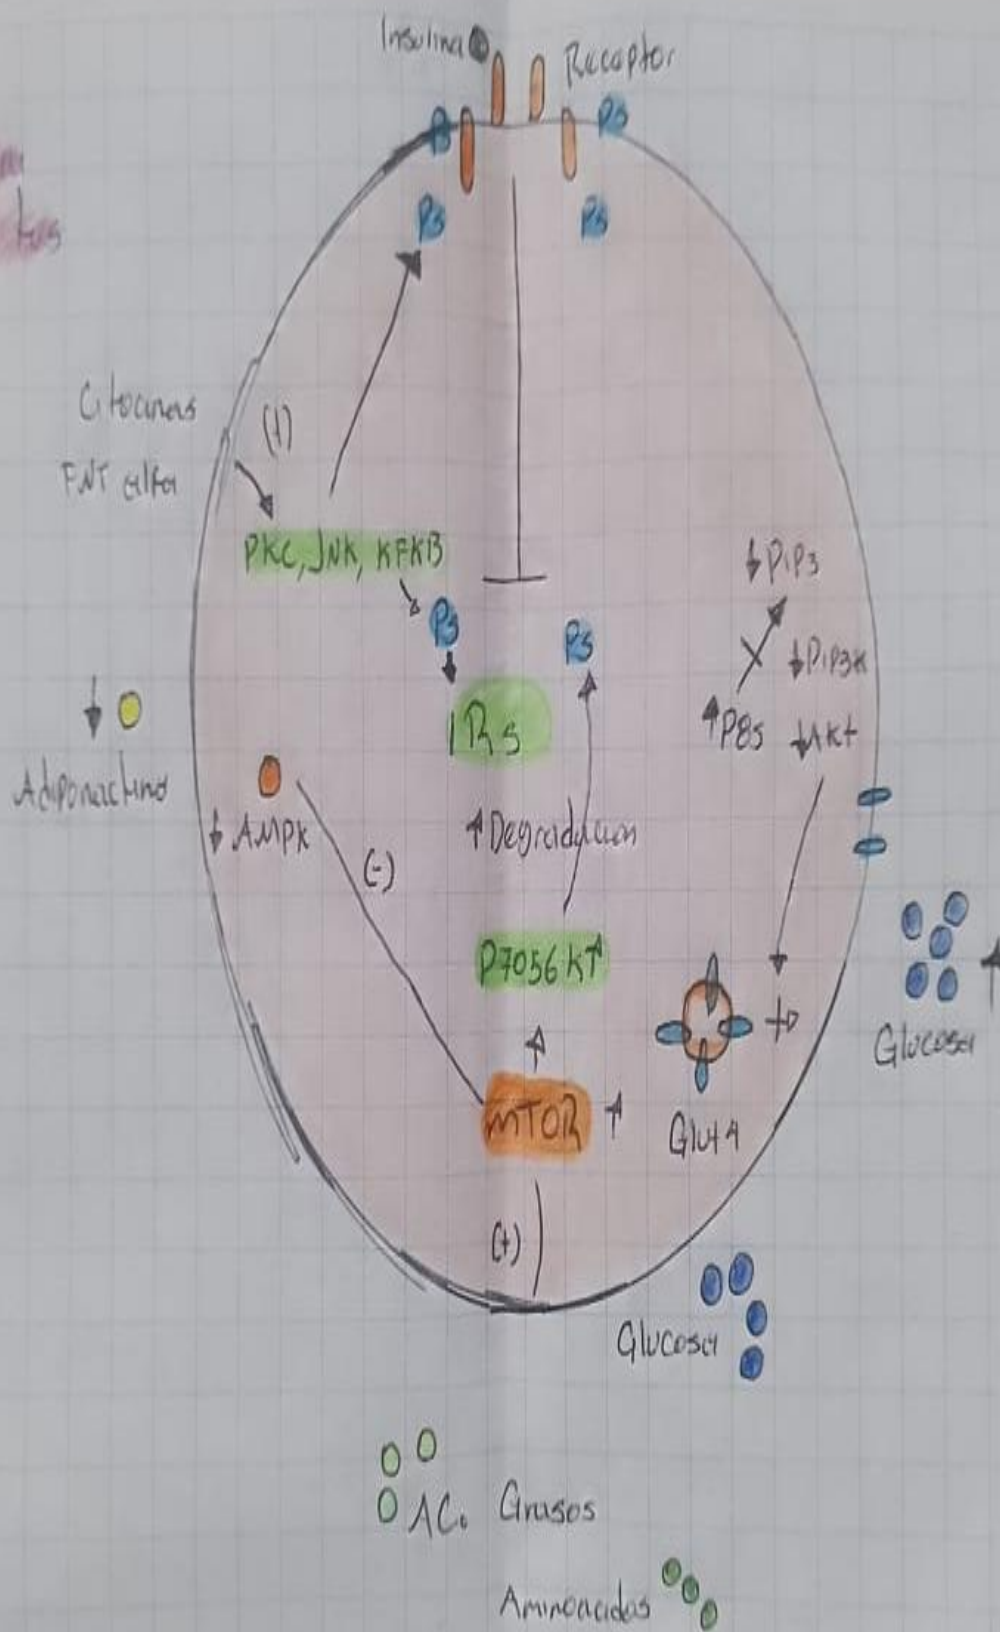 Insulina
Receptor
Ps
Ps
Ps
Ps
Citocinas
FNT alfa
(+)
PKC, JNK, KFKB
Ps
Ps
IRs
↓ PIP3
↓ PIP3K
↑ P85
↓ Akt
↓
Adiponectina
↓ AMPK
(-)
↑ Degradacion
P70S6K↑
mTOR ↑
Glut 4
Glucosa
(+)
Glucosa
AC. Grasos
Aminoacidos